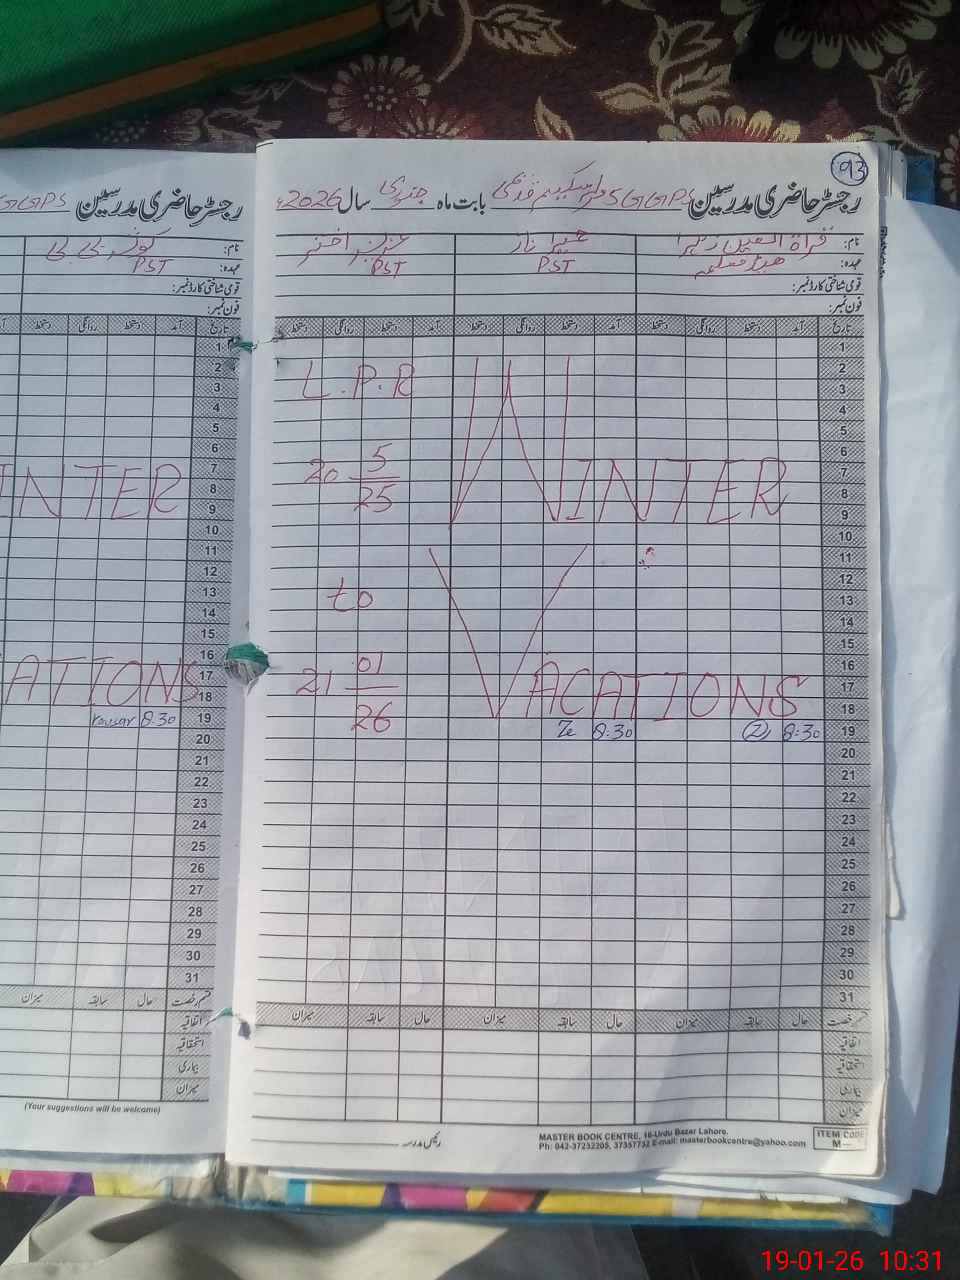 93
رجسٹر حاضری مدرسین GGPS بابت ماہ جنوری سال 2026ء
نام: قراۃ العین زہرا
عہدہ: ہیڈ معلمہ PST PST
قومی شناختی کارڈ نمبر:
فون نمبر:
تاریخ آمد دستخط روانگی دستخط آمد دستخط روانگی دستخط آمد دستخط روانگی دستخط
1
2
3
4
5
6
7
8
9
10
11
12
13
14
15
16
17
18
19
20
21
22
23
24
25
26
27
28
29
30
31
L.P.R
20 5/25
to
21 01/26
WINTER
VACATIONS
8:30 8:30
قسم رخصت حال سابقہ میزان حال سابقہ میزان حال سابقہ میزان
اتفاقیہ
استحقاقیہ
بیماری
میزان
رئیس مدرسہ
MASTER BOOK CENTRE, 16-Urdu Bazar Lahore.
Ph: 042-37232205, 37357732 E-mail: masterbookcentre@yahoo.com
ITEM CODE
M-
GGPS
رجسٹر حاضری مدرسین
نام: کوثر بی بی
عہدہ: PST
قومی شناختی کارڈ نمبر:
فون نمبر:
تاریخ آمد دستخط روانگی دستخط
1
2
3
4
5
6
7
8
9
10
11
12
13
14
15
16
17
18
19
20
21
22
23
24
25
26
27
28
29
30
31
INTER
ATIONS
kousar 8:30
قسم رخصت حال سابقہ میزان
اتفاقیہ
استحقاقیہ
بیماری
میزان
(Your suggestions will be welcome)
19-01-26 10:31